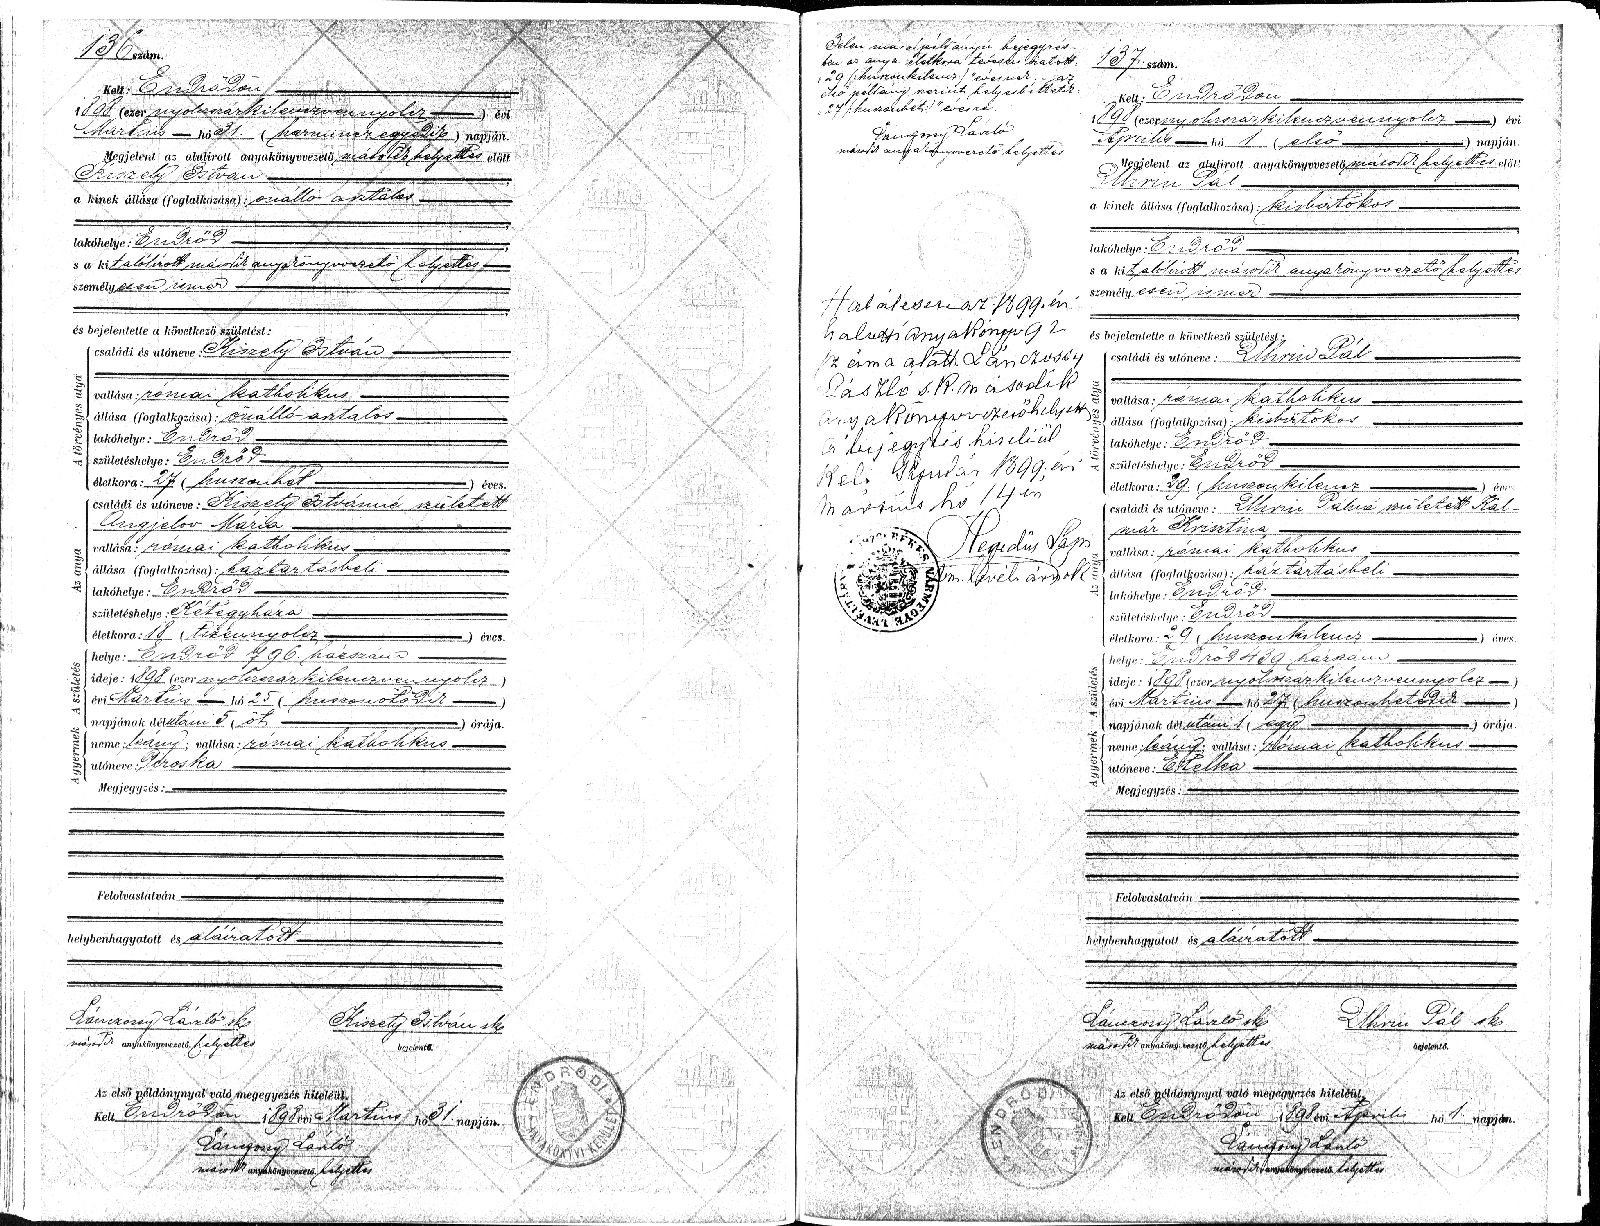 136 szám.
Kelt: Endrődön
1898 (ezer nyolcszázkilenczvennyolcz) évi
Martius hó 31. (harminczegyedik) napján.
Megjelent az alulirott anyakönyvvezető második helyettes előtt
Kiszely István
a kinek állása (foglalkozása): önálló asztalos
lakóhelye: Endrőd
s a kit alólirott második anyakönyvvezető helyettes
személyesen ismer
és bejelentette a következő születést:
A törvényes atya
családi és utóneve: Kiszely István
vallása: római katholikus
állása (foglalkozása): önálló asztalos
lakóhelye: Endrőd
születéshelye: Endrőd
életkora: 27 (huszonhét) éves.
Az anya
családi és utóneve: Kiszely Istvánné született
Angjelov Mária
vallása: római katholikus
állása (foglalkozása): háztartásbeli
lakóhelye: Endrőd
születéshelye: Kétegyháza
életkora: 18 (tizennyolcz) éves.
A születés
helye: Endrőd 796 házszám
ideje: 1898 (ezer nyolcszázkilenczvennyolcz)
évi Martius hó 25 (huszonötödik)
napjának délutáni 5 (öt) órája.
A gyermek
neme: leány; vallása: római katholikus
utóneve: Piroska
Megjegyzés:
Felolvastatván
helybenhagyatott és aláiratott
Lánczossy László sk Kiszely István sk
második anyakönyvvezető helyettes bejelentő.
Az első példánynyal való megegyezés hiteléül.
Kelt Endrődön 1898 évi Martius hó 31. napján.
Lánczossy László
második anyakönyvvezető helyettes
ENDRŐDI ANYAKÖNYVI KERÜLET
Jelen másodpéldányu bejegyzés-
ben az anya életkora tévesen iratott
29 /:huszonkilencz:/ évesnek az
első példány szerint helyesbittetik
27 /:huszonhét:/ évesre.
Lánczossy László
második anyakönyvvezető helyettes
Halálesete az 1899. évi
halotti anyakönyv 92
száma alatt. Lánczossy
László s.k. második
anyakönyvvezetőhelyettes
A bejegyzés hiteléül
Kelt Gyulán 1899. évi
márczius hó 14 én
Hegedüs
BÉKÉS VÁRMEGYE LEVÉLTÁRA
137. szám.
Kelt: Endrődön
1898 (ezer nyolcszázkilenczvennyolcz) évi
Április hó 1 (első) napján.
Megjelent az alulirott anyakönyvvezető második helyettes előtt
Uhrin Pál
a kinek állása (foglalkozása): kisbirtokos
lakóhelye: Endrőd
s a kit alólirott második anyakönyvvezető helyettes
személyesen ismer
és bejelentette a következő születést:
A törvényes atya
családi és utóneve: Uhrin Pál
vallása: római katholikus
állása (foglalkozása): kisbirtokos
lakóhelye: Endrőd
születéshelye: Endrőd
életkora: 29 (huszonkilencz) éves.
Az anya
családi és utóneve: Uhrin Pálné született Kal-
már Krisztina
vallása: római katholikus
állása (foglalkozása): háztartásbeli
lakóhelye: Endrőd
születéshelye: Endrőd
életkora: 29 (huszonkilencz) éves.
A születés
helye: Endrőd 439 házszám
ideje: 1898 (ezer nyolcszázkilenczvennyolcz)
évi Martius hó 27 (huszonhetedik)
napjának délutáni 1 (egy) órája.
A gyermek
neme: leány; vallása: római katholikus
utóneve: Etelka
Megjegyzés:
Felolvastatván
helybenhagyatott és aláiratott
Lánczossy László sk Uhrin Pál sk
második anyakönyvvezető helyettes bejelentő.
Az első példánynyal való megegyezés hiteléül.
Kelt Endrődön 1898 évi Április hó 1. napján.
Lánczossy László
második anyakönyvvezető helyettes
ENDRŐDI